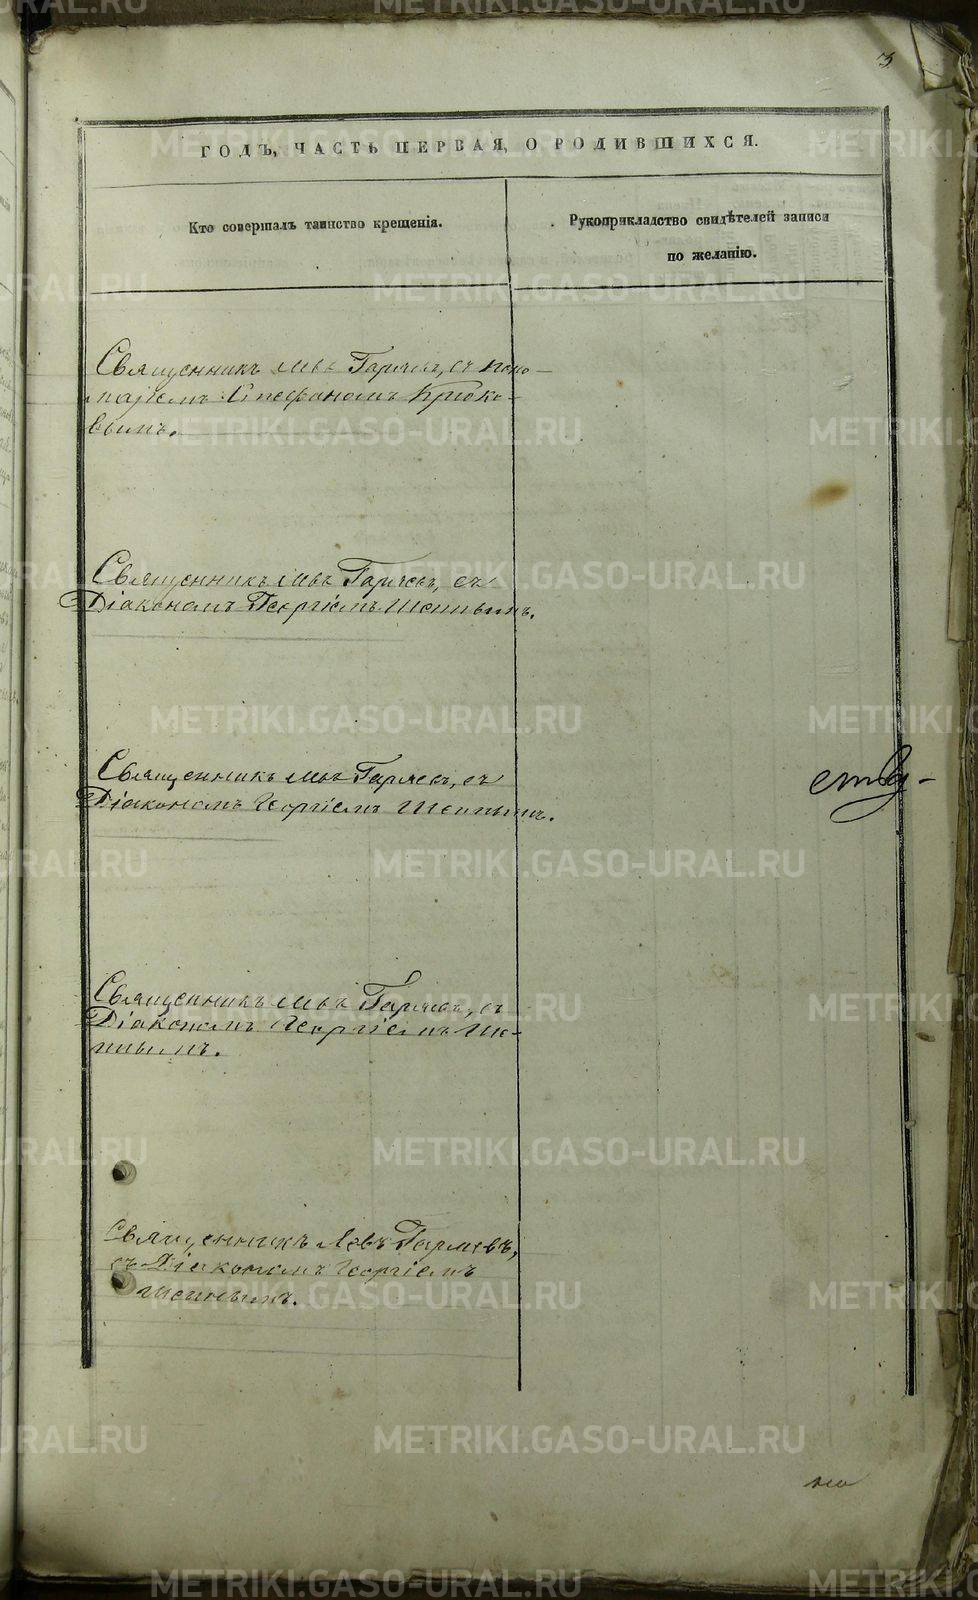 3
ГОДЪ, ЧАСТЬ ПЕРВАЯ, О РОДИВШИХСЯ.
Кто совершалъ таинство крещенія.
Рукоприкладство свидѣтелей записи
по желанію.
Священникъ Левъ Гаряевъ, съ поно-
маремъ Стефаномъ Крюко-
вымъ.
Священникъ Левъ Гаряевъ, съ
Діакономъ Георгіемъ
Священникъ Левъ Гаряевъ, съ
Діакономъ Георгіемъ
Священникъ Левъ Гаряевъ, съ
Діакономъ Георгіемъ
Священникъ Левъ Гаряевъ,
съ Діакономъ Георгіемъ
METRIKI.GASO-URAL.RU